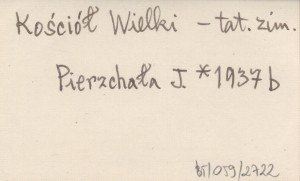 Kościół Wielki – tat. zim.
Pierzchała J. *1937 b
/059/2722